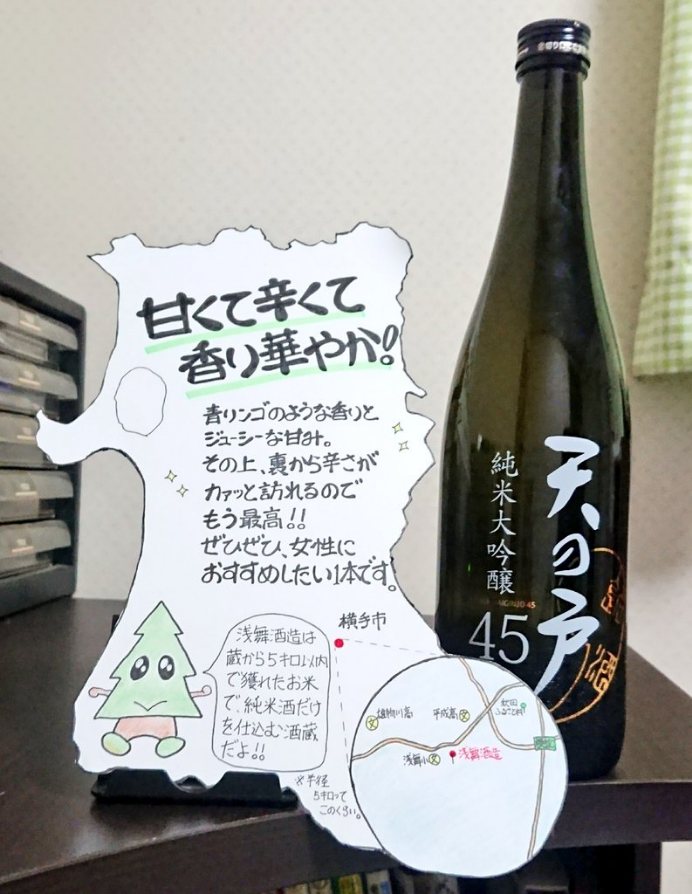 甘くて辛くて
香り華やか!
青リンゴのような香りと
ジューシーな甘み。
その上、裏から辛さが
カァッと訪れるので
もう最高!!
ぜひぜひ、女性に
おすすめしたい1本です。
横手市
浅舞酒造は
蔵から5キロ以内
で獲れたお米
で、純米酒だけ
を仕込む酒蔵
だよ!!
※半径
5キロって
このくらい。
雄物川高
文
平成高
文
秋田
ふるさと村
浅舞小
文
浅舞酒造
天の戸
純米大吟醸
45